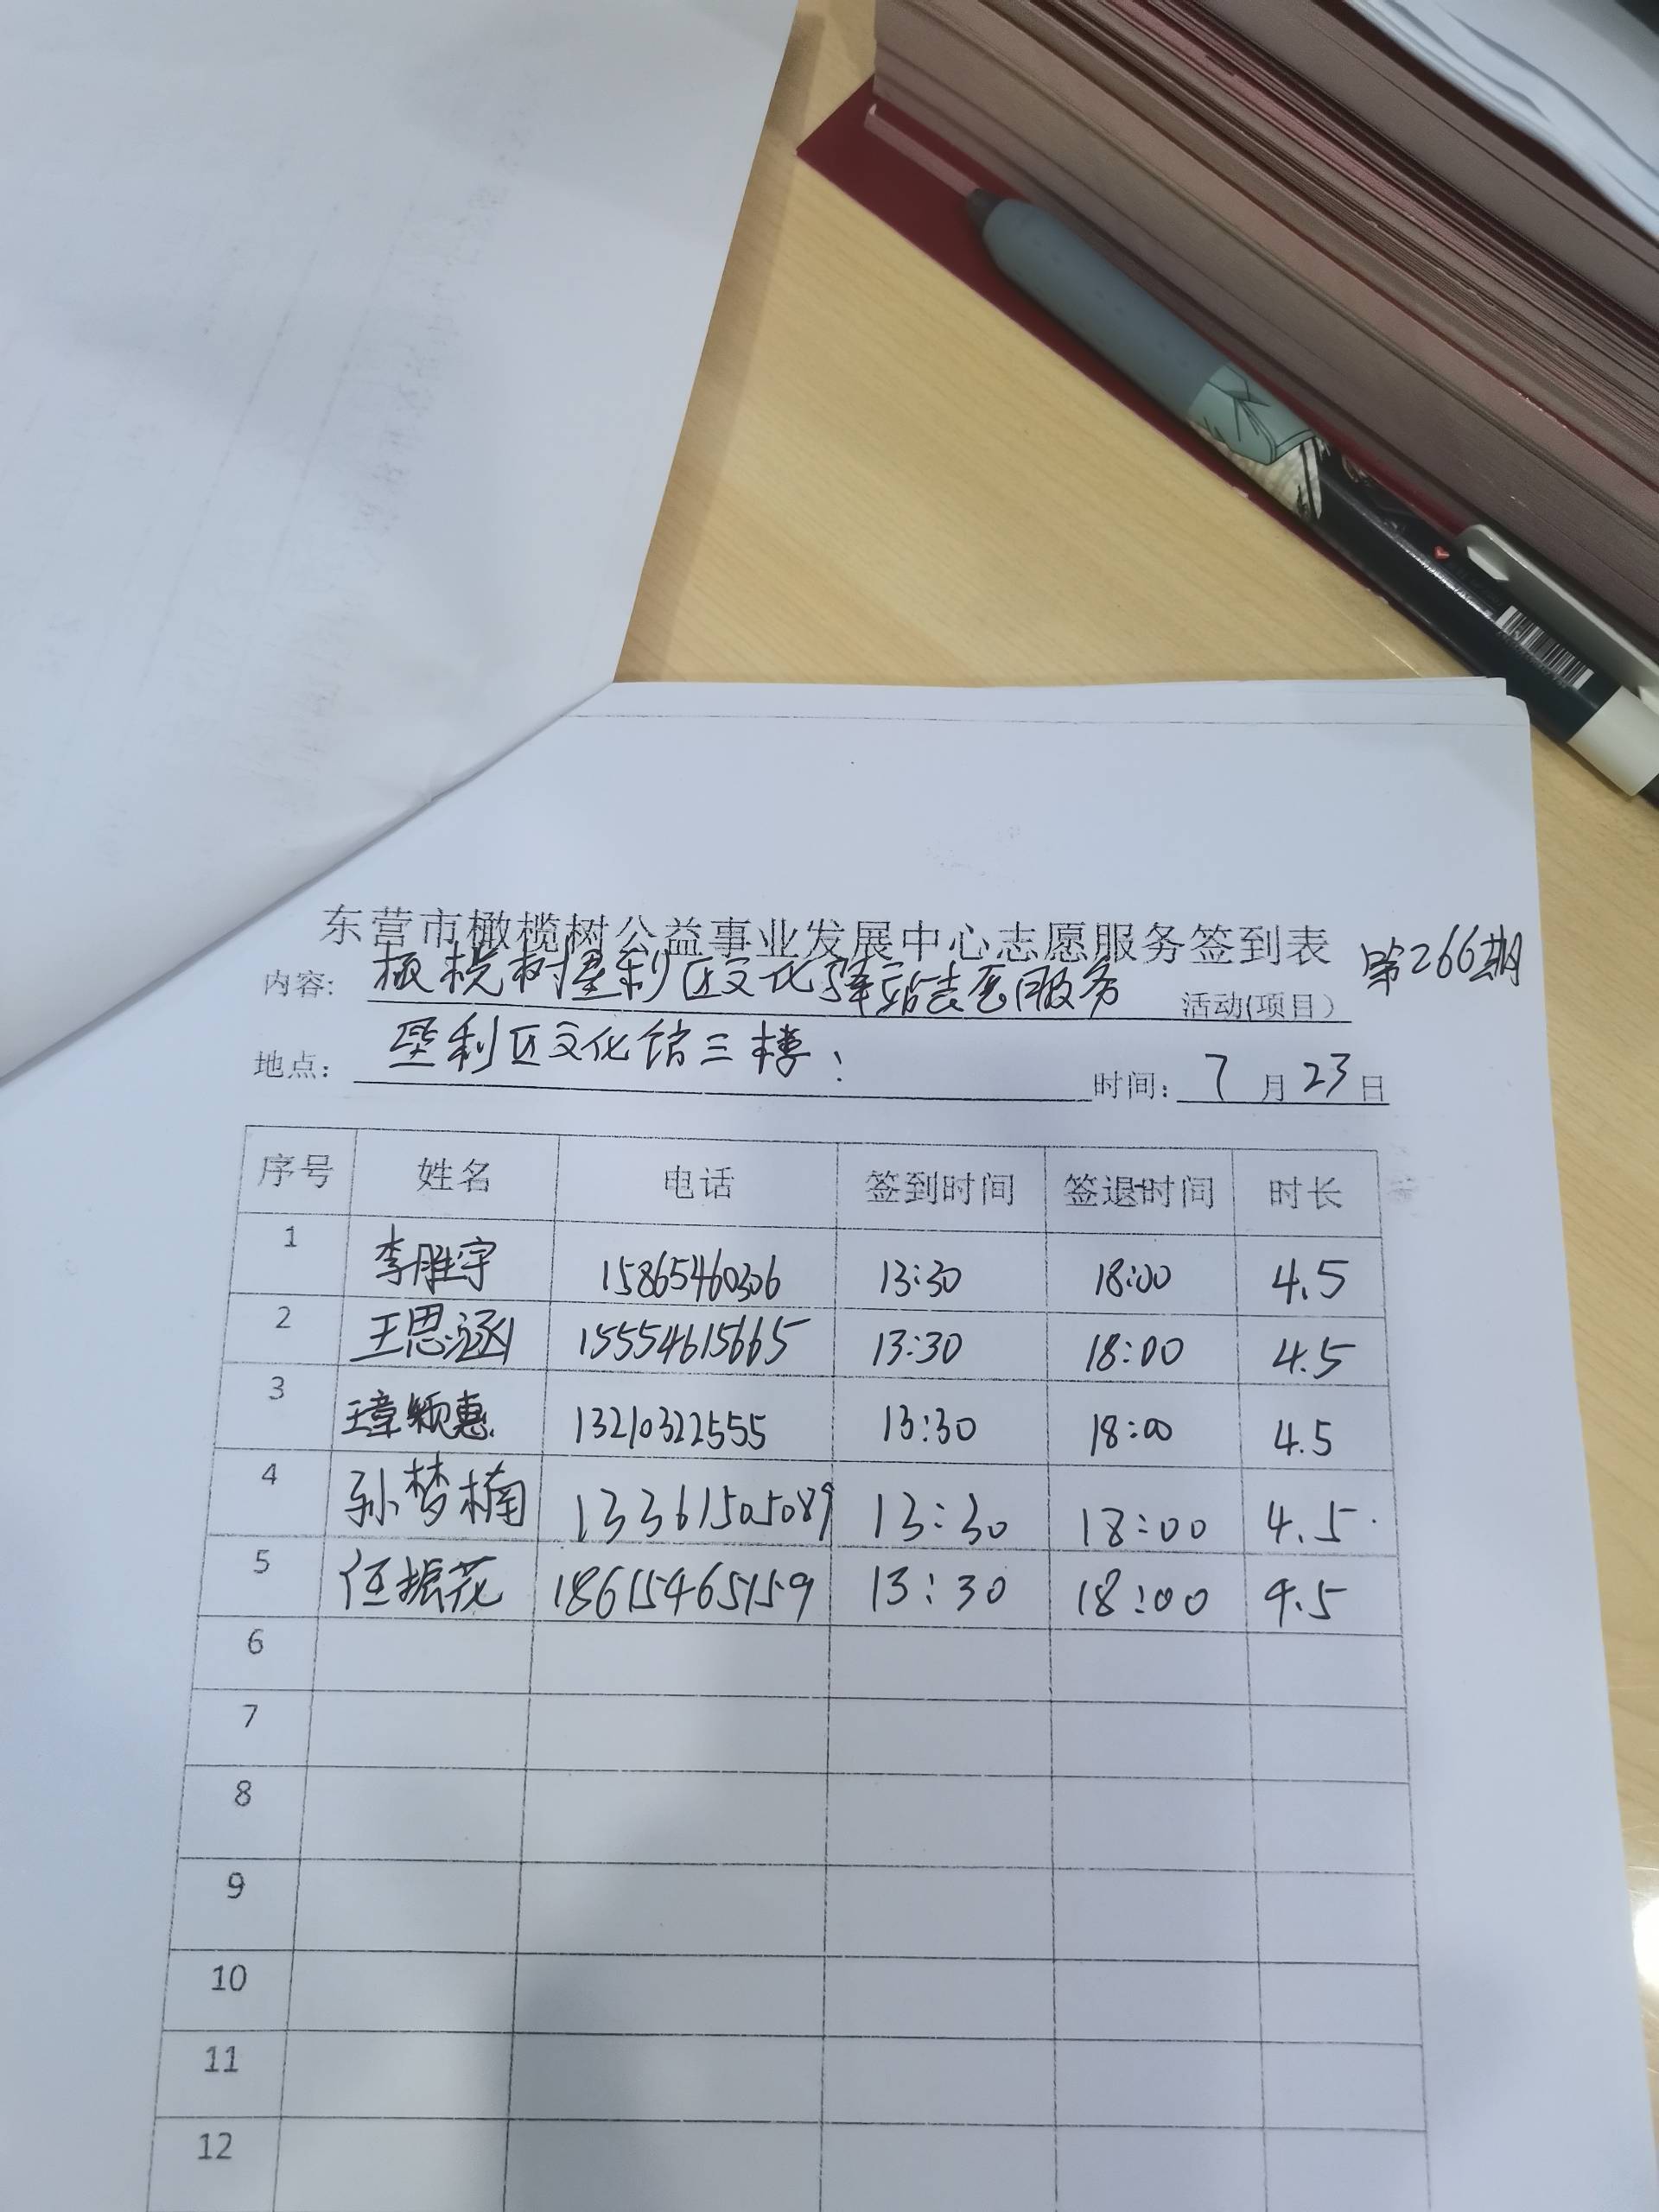 东营市橄榄树公益事业发展中心志愿服务签到表 第266期
内容: 橄榄树垦利区文化驿站志愿服务 活动(项目)
地点: 垦利区文化馆三楼 时间: 7月23日
序号 姓名 电话 签到时间 签退时间 时长
1 李胜宇 15865460306 13:30 18:00 4.5
2 王思涵 15554615665 13:30 18:00 4.5
3 王章颖惠 13210322555 13:30 18:00 4.5
4 孙梦楠 13361505089 13:30 18:00 4.5
5 任振花 18615465159 13:30 18:00 4.5
6
7
8
9
10
11
12